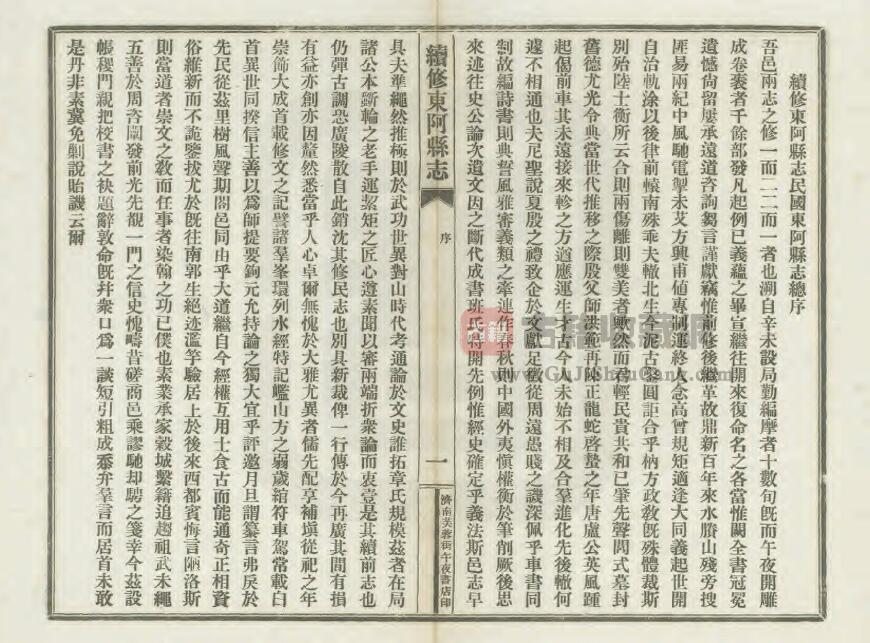 續修東阿縣志民國東阿縣志總序
吾邑兩志之修一而二二而一者也溯自辛未設局勤編摩者十數旬既而午夜開雕
成卷袠者千餘部發凡起例已義蘊之畢宣繼往開來復命名之各當惟闕全書冠冕
遺憾尚留屢承遠道咨詢芻言謹獻竊惟前修後繼革故鼎新百年來水賸山殘旁搜
匪易兩紀中風馳電掣未艾方興甫値專制運終人念高曾規矩適逢大同義起世開
自治軌涂以後律前轅南殊乖夫轍北生今泥古鑿圓詎合乎枘方政敎既殊體裁斯
別殆陸士衡所云合則兩傷離則雙美者歟然而君輕民貴共和已肇先聲閎式墓封
舊德尤光令典當世代推移之際殷父師洪範再陳正龍蛇啓蟄之年唐盧公英風踵
起偈前車其未遠接來軫之方遒應運生才古今人未始不相及合羣進化先後轍何
遽不相通也夫尼聖說夏殷之禮致企於文獻足徵從周遠愚賤之譏深佩乎車書同
制故編詩書則典誓風雅審義類之牽連作春秋則中國外夷愼權衡於筆削厥後思
來述往史公論次遺文因之斷代成書班氏特開先例惟經史確定乎義法斯邑志早
具夫準繩然推極則於武功世異對山時代考通論於文史誰拓章氏規模茲者在局
諸公本斲輪之老手運絜矩之匠心遵素聞以審兩端折衆論而衷壹是其續前志也
仍彈古調恐廣陵散自此銷沈其修民志也別具新裁俾一行傳於今再廣其間有損
有益亦創亦因釐然悉當乎人心卓爾無愧於大雅尤異者儒先配享補塡從祀之年
崇飾大成首載修文之記譬諸羣峯環列水經特記巄山方之弱歲綰符車駕常載白
首異世同揆信主善以爲師提要鉤元允持論之獨大宜乎評邀月旦謂纂言弗戾於
先民從茲里樹風聲期闔邑同由乎大道繼自今經權互用士食古而能通奇正相資
俗維新而不詭鑒拔尤於既往南郭生絕迹濫竽驗居上於後來西都賓悔言陋洛斯
則當道者崇文之敎而任事者染翰之功已僕也素業承家穀城繫籍追趨祖武未繩
五善於周咨闡發前光先覩一門之信史愧疇昔磋商邑乘謬馳却聘之箋幸今茲設
帳稷門親把校書之袂題辭敦命既幷衆口爲一談短引粗成忝弁羣言而居首未敢
是丹非素冀免剿說貽譏云爾
續修東阿縣志
序
一
濟南芙蓉街午夜書店印
www.GuJiShuCang.com